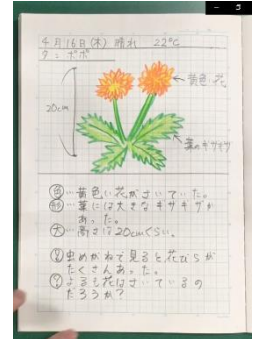 4月16日(木) 晴れ 22℃
タンポポ
20cm
黄色い花
葉のギザギザ
色…黄色い花がさいていた。
形…葉には大きなギザギザが
あった。
大…高さは20cmくらい。
虫めがねで見ると花びらが
たくさんあった。
よるも花はさいているの
だろうか?